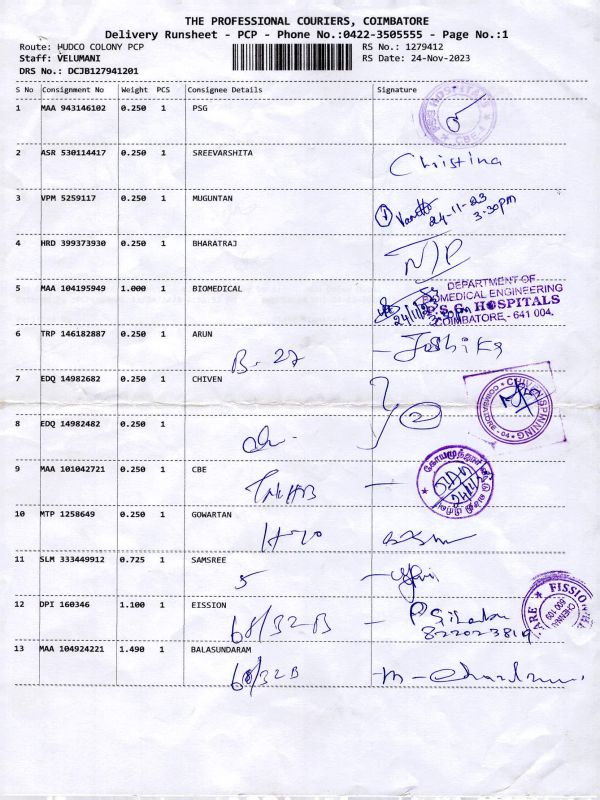 THE PROFESSIONAL COURIERS, COIMBATORE
Delivery Runsheet - PCP - Phone No.:0422-3505555 - Page No.:1
Route: HUDCO COLONY PCP RS No.: 1279412
Staff: VELUMANI RS Date: 24-Nov-2023
DRS No.: DCJB127941201
S No Consignment No Weight PCS Consignee Details Signature
1 MAA 943146102 0.250 1 PSG
2 ASR 530114417 0.250 1 SREEVARSHITA Christina
3 VPM 5259117 0.250 1 MUGUNTAN 24-11-23
3.30pm
4 HRD 399373930 0.250 1 BHARATRAJ
5 MAA 104195949 1.000 1 BIOMEDICAL
DEPARTMENT OF
BIOMEDICAL ENGINEERING
P.S.G. HOSPITALS
COIMBATORE - 641 004.
6 TRP 146182887 0.250 1 ARUN
B-27
7 EDQ 14982682 0.250 1 CHIVEN
CHIVEN SPINNING
COIMBATORE - 04
8 EDQ 14982482 0.250 1 2
9 MAA 101042721 0.250 1 CBE
TNHB
10 MTP 1258649 0.250 1 GOWARTAN
H-70
11 SLM 333449912 0.725 1 SAMSREE
5
12 DPI 160346 1.100 1 EISSION
68/32-B
13 MAA 104924221 1.490 1 BALASUNDARAM
68/32B